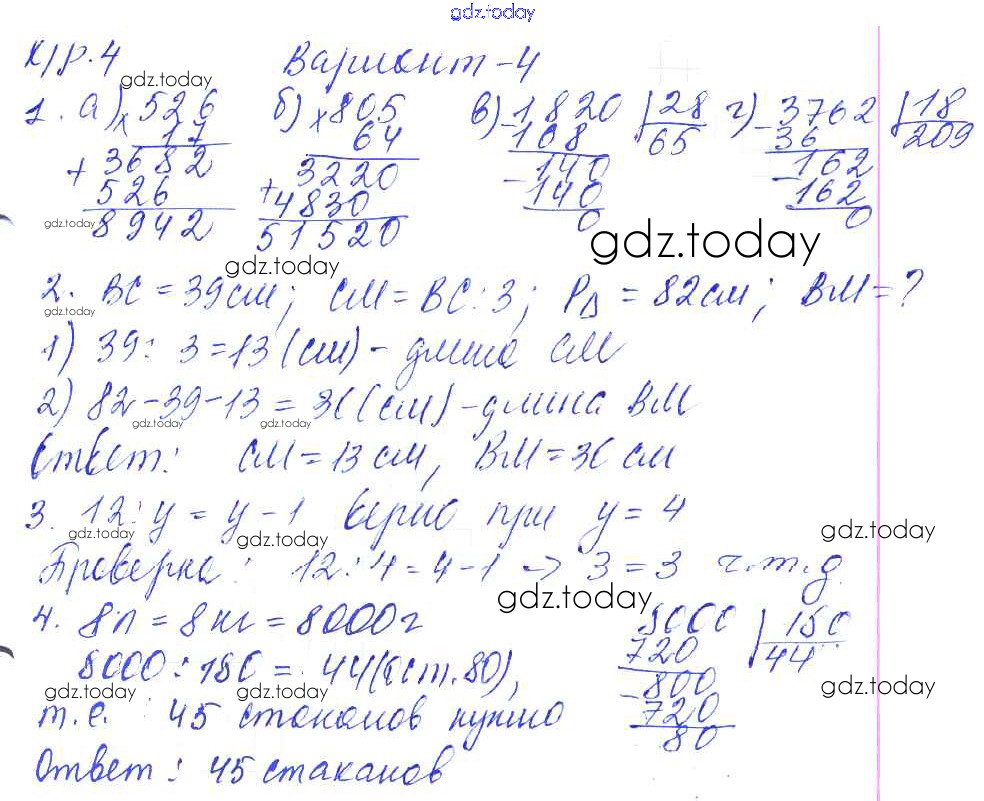 gdz.today
К/р.4 Вариант-4
gdz.today
1. а) × 526 б) × 805 в) 1820 | 28 г) 3762 | 18
17 64 - 168 65 - 36 209
+ 3682 3220 140 162
526 + 4830 - 140 - 162
8942 51520 0 0
gdz.today gdz.today gdz.today
2. ВС = 39см; СМ = ВС:3; PΔ = 82см; ВМ=?
gdz.today
1) 39 : 3 = 13 (см) - длина СМ
2) 82-39-13 = 30(см) - длина ВМ
gdz.today gdz.today
Ответ: СМ = 13 см, ВМ = 30 см
3. 12 : y = y - 1 верно при y = 4
gdz.today gdz.today gdz.today
Проверка: 12 : 4 = 4-1 -> 3 = 3 ч.т.д.
gdz.today
4. 8л = 8кг = 8000г 8000 | 180
8000 : 180 = 44(ост.80), 720 44
gdz.today gdz.today gdz.today gdz.today
- 800
т.е. 45 стаканов нужно 720
80
Ответ: 45 стаканов